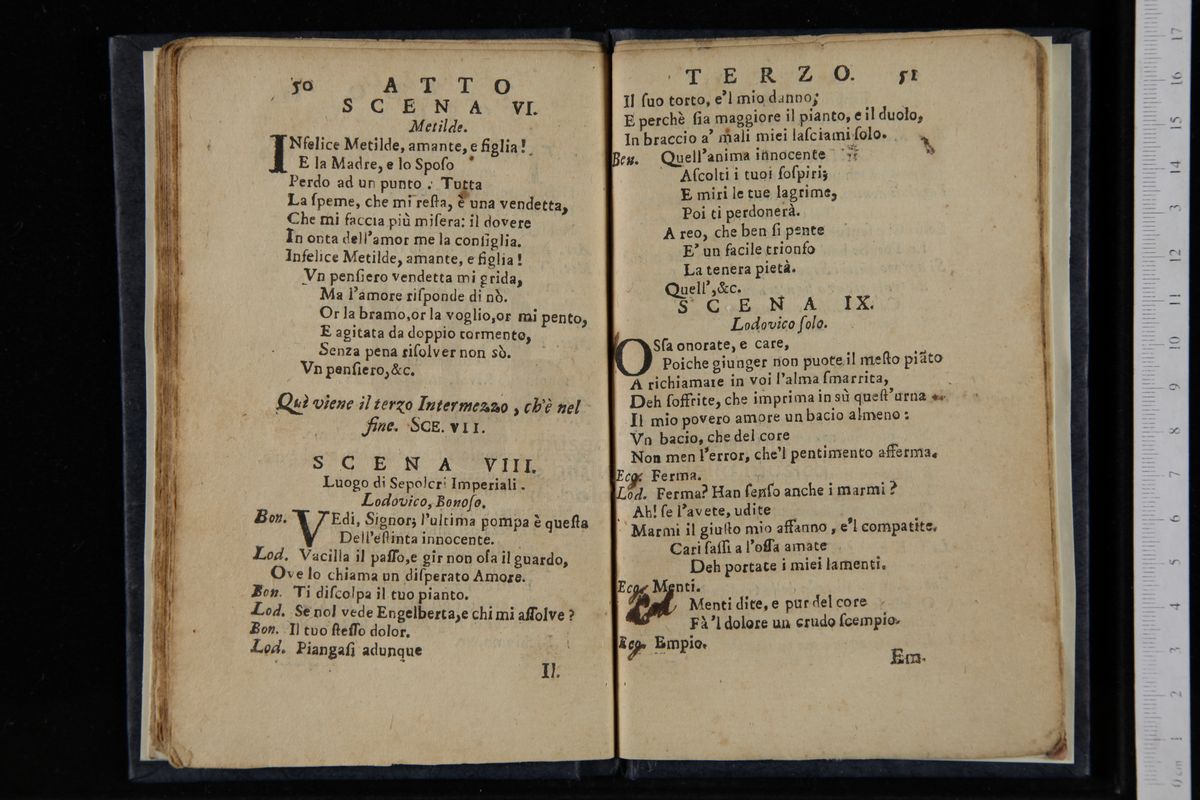 50 ATTO
SCENA VI.
Metilde.
INfelice Metilde, amante, e figlia!
E la Madre, e lo Sposo
Perdo ad un punto. Tutta
La ſpeme, che mi reſta, è una vendetta,
Che mi faccia più miſera: il dovere
In onta dell'amor me la conſiglia.
Infelice Metilde, amante, e figlia!
Vn penſiero vendetta mi grida,
Ma l'amore riſponde di nò.
Or la bramo, or la voglio, or mi pento,
E agitata da doppio tormento,
Senza pena riſolver non sò.
Vn penſiero, &c.
Quì viene il terzo Intermezzo, ch'è nel
fine. SCE. VII.
SCENA VIII.
Luogo di Sepolcri Imperiali.
Lodovico, Bonoſo.
Bon. VEdi, Signor; l'ultima pompa è queſta
Dell'eſtinta innocente.
Lod. Vacilla il paſſo, e gir non oſa il guardo,
Ove lo chiama un diſperato Amore.
Bon. Ti diſcolpa il tuo pianto.
Lod. Se nol vede Engelberta, e chi mi aſſolve?
Bon. Il tuo ſteſſo dolor.
Lod. Piangaſi adunque
Il.
TERZO. 51
Il ſuo torto, e'l mio danno;
E perchè ſia maggiore il pianto, e il duolo,
In braccio a' mali miei laſciami ſolo.
Ben. Quell'anima innocente
Aſcolti i tuoi ſoſpiri;
E miri le tue lagrime,
Poi ti perdonerà.
A reo, che ben ſi pente
E' un facile trionfo
La tenera pietà.
Quell', &c.
SCENA IX.
Lodovico ſolo.
OSſa onorate, e care,
Poiche giunger non puote il meſto piãto
A richiamare in voi l'alma ſmarrita,
Deh ſoffrite, che imprima in sù queſt'urna
Il mio povero amore un bacio almeno:
Vn bacio, che del core
Non men l'error, che'l pentimento afferma.
Eco. Ferma.
Lod. Ferma? Han ſenſo anche i marmi?
Ah! ſe l'avete, udite
Marmi il giuſto mio affanno, e'l compatite.
Cari ſaſſi a l'oſſa amate
Deh portate i miei lamenti.
Eco. Menti.
Lod Menti dite, e pur del core
Fà'l dolore un crudo ſcempio.
Eco. Empio.
Em.